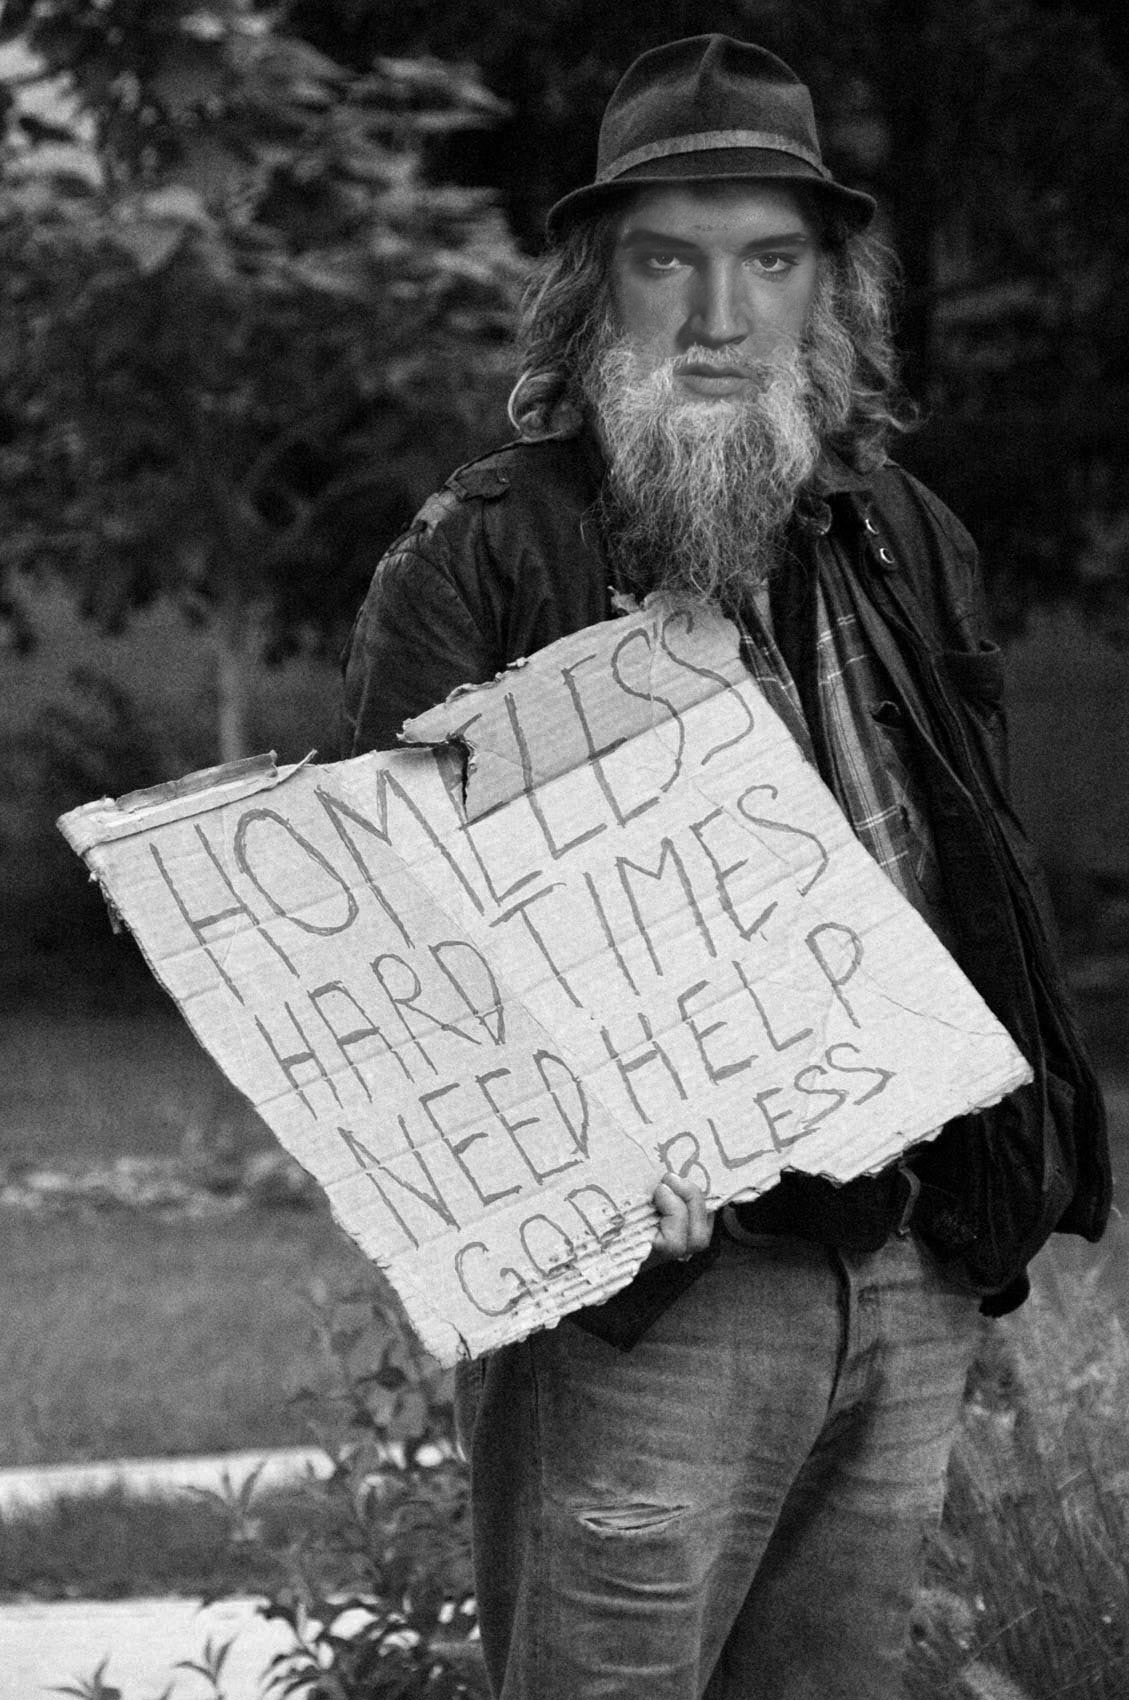 HOMELESS
HARD TIMES
NEED HELP
GOD BLESS